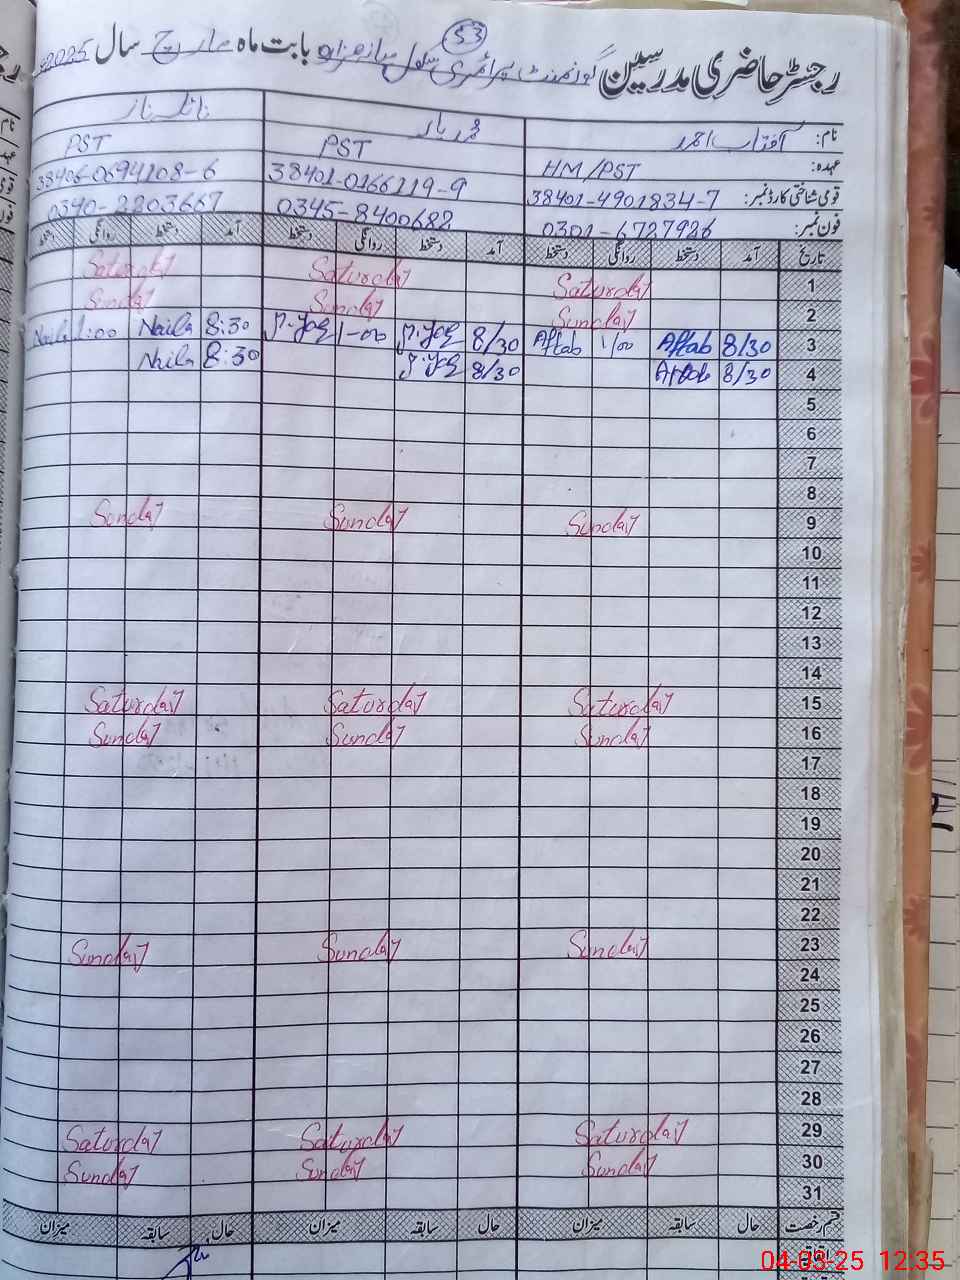 53
رجسٹر حاضری مدرسین گورنمنٹ پرائمری سکول بابت ماہ مارچ سال 2025
نام: آفتاب احمد محمد یار نائلہ ناز
عہدہ: HM/PST PST PST
قومی شناختی کارڈ نمبر: 38401-4901834-7 38401-0166119-9 38406-0694108-6
فون نمبر: 0301-6727926 0345-8400682 0340-2203667
تاریخ آمد دستخط روانگی دستخط آمد دستخط روانگی دستخط آمد دستخط روانگی دستخط
1 Saturday Saturday Saturday
2 Sunday Sunday Sunday
3 8/30 Aftab 1/00 Aftab 8/30 1-00 8:30 Naila 1:00 Naila
4 8/30 Aftab 8/30 8:30 Naila
5
6
7
8
9 Sunday Sunday Sunday
10
11
12
13
14
15 Saturday Saturday Saturday
16 Sunday Sunday Sunday
17
18
19
20
21
22
23 Sunday Sunday Sunday
24
25
26
27
28
29 Saturday Saturday Saturday
30 Sunday Sunday Sunday
31
قسم رخصت حال سابقہ میزان حال سابقہ میزان حال سابقہ میزان
اتفاقیہ
04-03-25 12:35